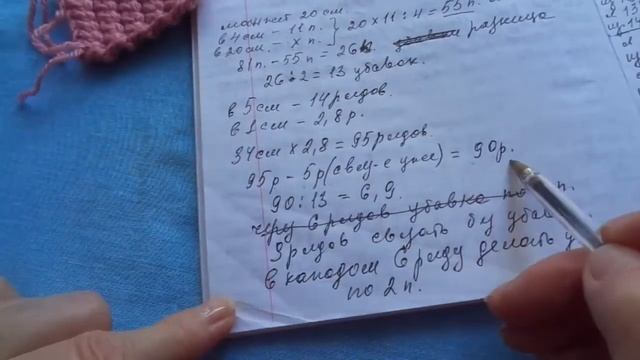 манжет 20 см.
в 4 см – 11 п. } 20 х 11 : 4 = 55 п.
в 20 см. – х п.
81 п. – 55 п = 26 разница
26 : 2 = 13 убавок.
в 5 см – 14 рядов.
в 1 см – 2,8 р.
34 см х 2,8 = 95 рядов.
95 р – 5 р = 90 р.
90 : 13 = 6,9.
через 6 рядов убавка по п.
рядов связать без
в каждом 6 ряду делать у
по 2 п.